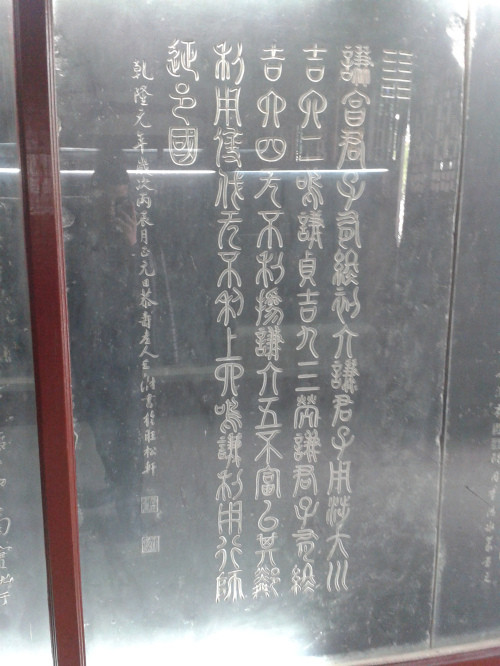 ䷎
謙亨君子有終初六謙君子用涉大川
吉六二鳴謙貞吉九三勞謙君子有終
吉六四无不利撝謙六五不富以其鄰
利用侵伐无不利上六鳴謙利用行師
征邑國
乾隆元年歲次丙辰月正元日恭壽老人王澍書於松軒